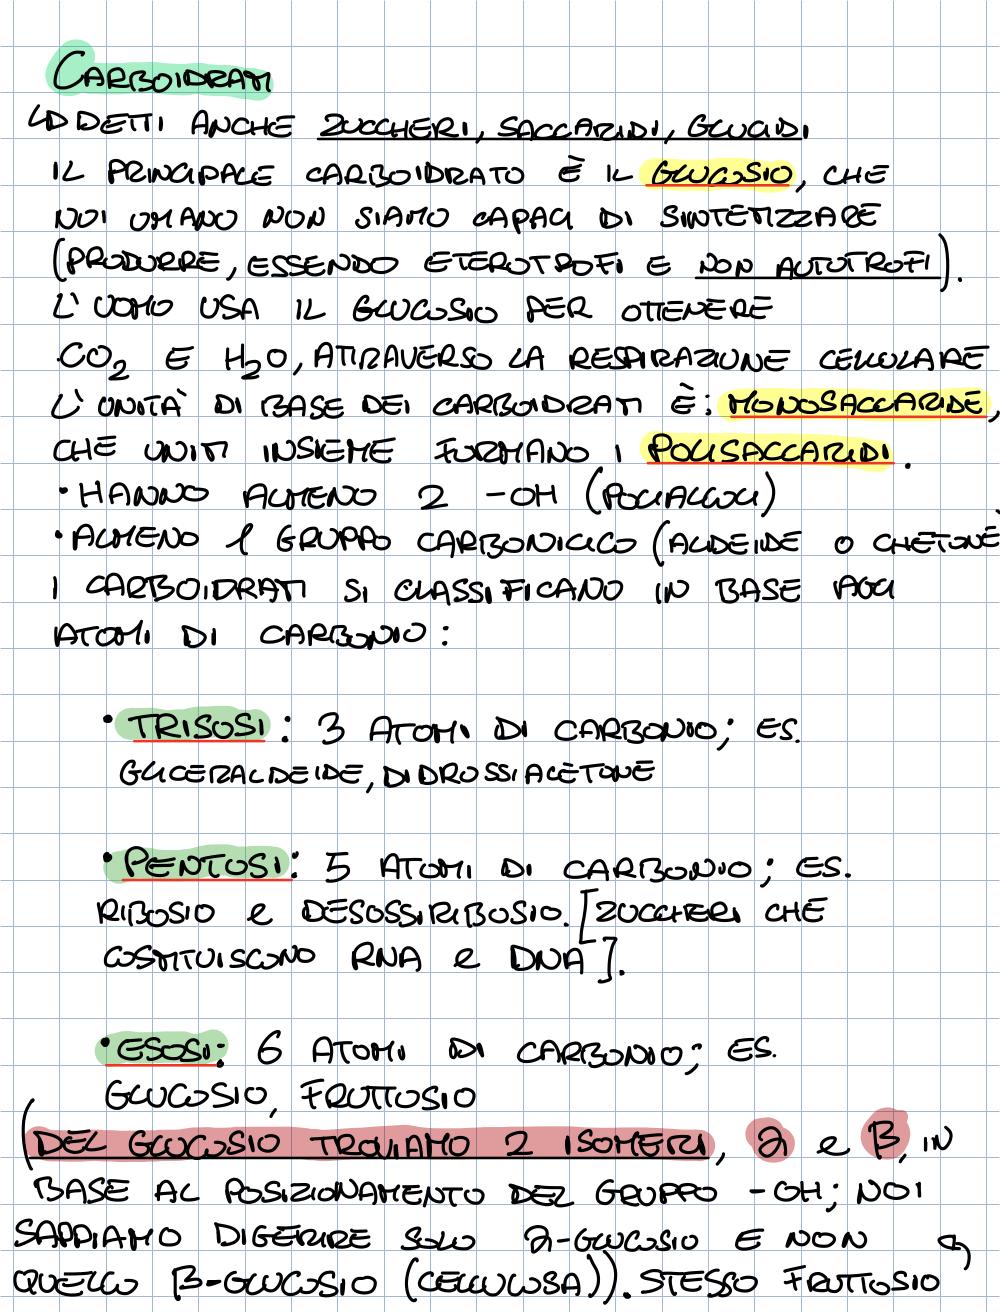 CARBOIDRATI
↳ DETTI ANCHE ZUCCHERI, SACCARIDI, GLUCIDI
IL PRINCIPALE CARBOIDRATO È IL GLUCOSIO, CHE
NOI UMANO NON SIAMO CAPACI DI SINTETIZZARE
(PRODURRE, ESSENDO ETEROTROFI E NON AUTOTROFI).
L'UOMO USA IL GLUCOSIO PER OTTENERE
CO₂ E H₂O, ATTRAVERSO LA RESPIRAZIONE CELLULARE
L'UNITÀ DI BASE DEI CARBOIDRATI È: MONOSACCARIDE,
CHE UNITI INSIEME FORMANO I POLISACCARIDI.
• HANNO ALMENO 2 -OH (POLIALCOLI)
• ALMENO 1 GRUPPO CARBONILICO (ALDEIDE O CHETONE)
I CARBOIDRATI SI CLASSIFICANO IN BASE AGLI
ATOMI DI CARBONIO:
• TRISOSI: 3 ATOMI DI CARBONIO; ES.
GLICERALDEIDE, DIDROSSIACETONE
• PENTOSI: 5 ATOMI DI CARBONIO; ES.
RIBOSIO e DESOSSIRIBOSIO. [ZUCCHERI CHE
COSTITUISCONO RNA e DNA].
• ESOSI: 6 ATOMI DI CARBONIO; ES.
GLUCOSIO, FRUTTOSIO
(DEL GLUCOSIO TROVIAMO 2 ISOMERI, α e β, IN
BASE AL POSIZIONAMENTO DEL GRUPPO -OH; NOI
SAPPIAMO DIGERIRE SOLO α-GLUCOSIO E NON
QUELLO β-GLUCOSIO (CELLULOSA)). STESSO FRUTTOSIO ↰